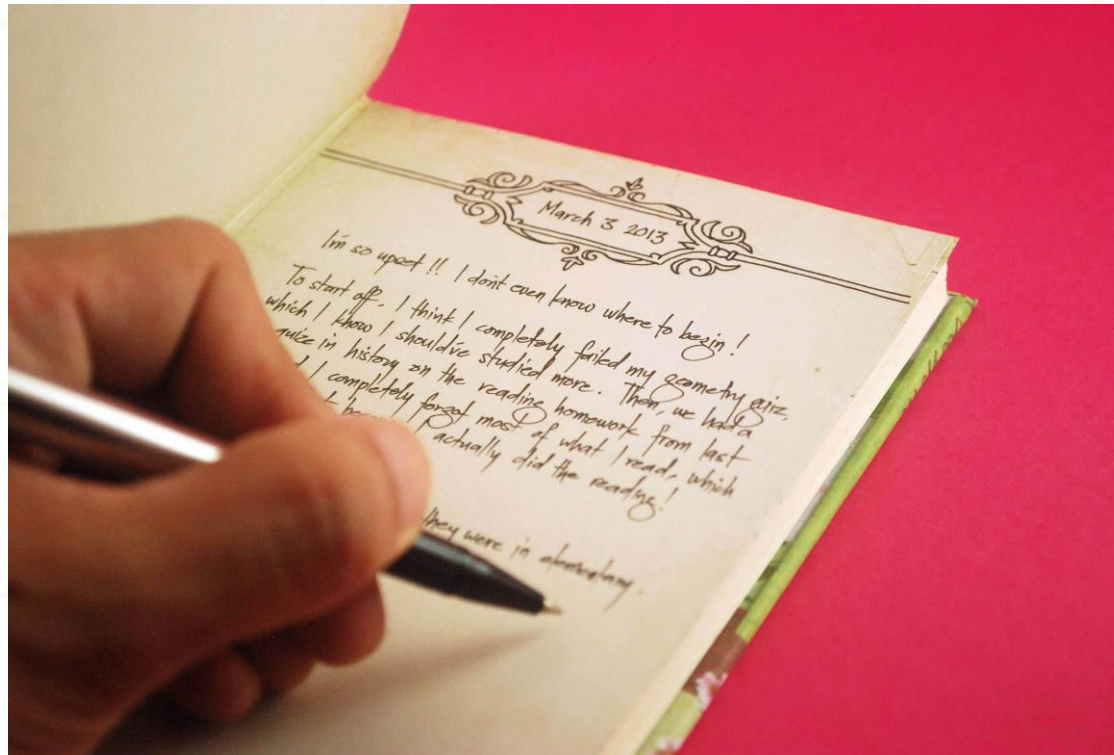 March 3 2013
I'm so upset!! I don't even know where to begin!
To start off, I think I completely failed my geometry quiz,
which I know I should've studied more. Then, we had a
quize in history on the reading homework from last
I completely forgot most of what I read, which
actually did the reading!
they were in elementary.